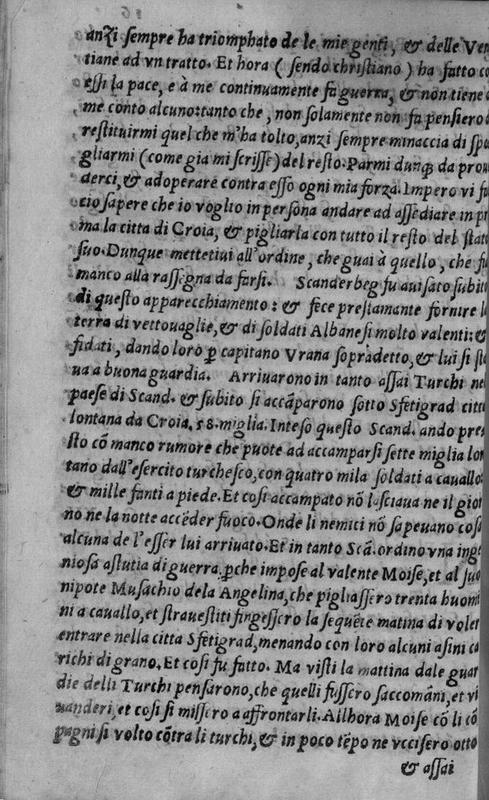 anzi sempre ha triomphato de le mie genti, & delle Ven
tiane ad vn tratto. Et hora ( sendo christiano ) ha fatto co
essi la pace, e à me continuamente fa guerra, & non tiene d
me conto alcuno: tanto che, non solamente non fa pensiero d
restituirmi quel che m'ha tolto, anzi sempre minaccia di spo
gliarmi (come gia mi scrisse) del resto. Parmi dunq; da prou
derci, & adoperare contra esso ogni mia forza. Impero vi fa
cio sapere che io voglio in persona andare ad assediare in pri
ma la citta di Croia, & pigliarla con tutto il resto del stato
suo. Dunque mettetiui all'ordine, che guai à quello, che fu
manco alla rassegna da farsi. Scanderbeg fu auisato subito
di questo apparecchiamento: & fece prestamente fornire la
terra di vettouaglie, & di soldati Albanesi molto valenti: &
fidati, dando loro ꝑ capitano Vrana sopradetto, & lui si sta
ua a buona guardia. Arriuarono in tanto assai Turchi nel
paese di Scand. & subito si accãparono sotto Sfetigrad citta
lontana da Croia. 58. miglia. Inteso questo Scand. ando pre
sto cõ manco rumore che puote ad accamparsi sette miglia lon
tano dall'esercito turchesco, con quattro mila soldati a cauallo:
& mille fanti a piede. Et cosi accampato nõ lasciaua ne il gior
no ne la notte accẽder fuoco. Onde li nemici nõ sapeuano cosa
alcuna de l'esser lui arriuato. Et in tanto Scã. ordino vna inge
niosa astutia di guerra. ꝑche impose al valente Moise, et al suo
nipote Musachio dela Angelina, che pigliassero trenta huomi
ni a cauallo, et strauestiti fingessero la sequẽte matina di voler
entrare nella citta Sfetigrad, menando con loro alcuni asini ca
richi di grano. Et cosi fu fatto. Ma visti la mattina dale guar
die delli Turchi pensarono, che quelli fussero saccomãni, et vi
uanderi, et cosi si missero a affrontarli. Allhora Moise cõ li cõ
pagni si volto cõtra li turchi, & in poco tẽpo ne vccisero otto
& assai